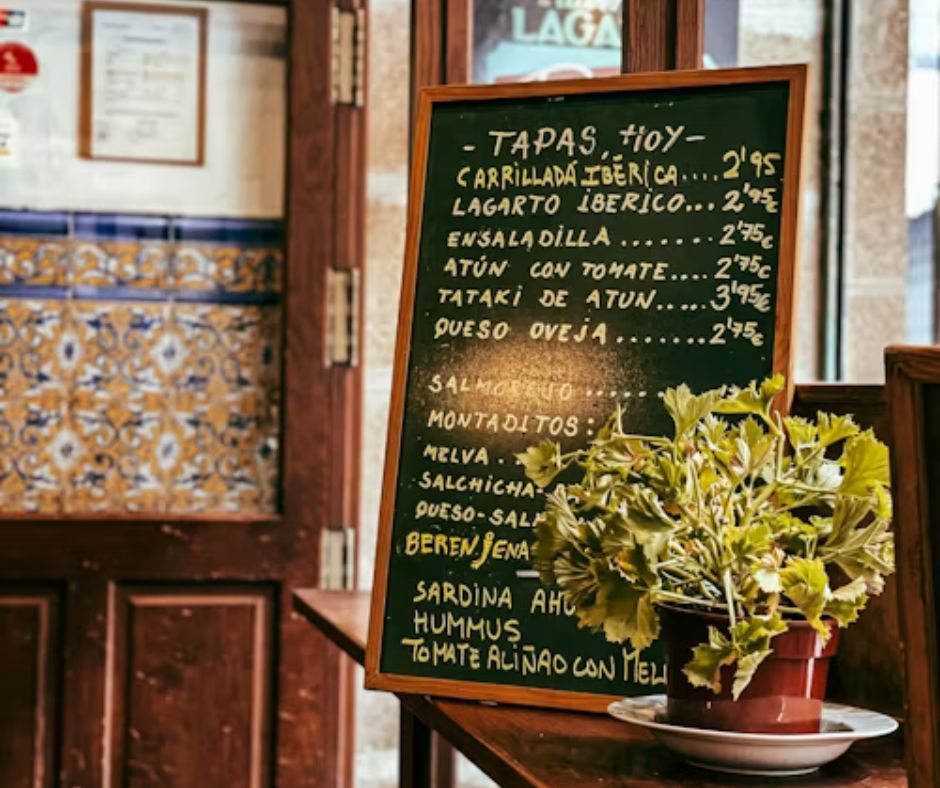 LAGA
- TAPAS, HOY -
CARRILLADA IBÉRICA.... 2'95
LAGARTO IBERICO... 2'95€
ENSALADILLA ....... 2'75€
ATÚN CON TOMATE.... 2'75€
TATAKI DE ATUN..... 3'95€
QUESO OVEJA ....... 2'75€
SALMOREJO ......
MONTADITOS:
MELVA ..
SALCHICHA-
QUESO-SALM
BERENJENA
SARDINA AHU
HUMMUS
TOMATE ALIÑAO CON MEL